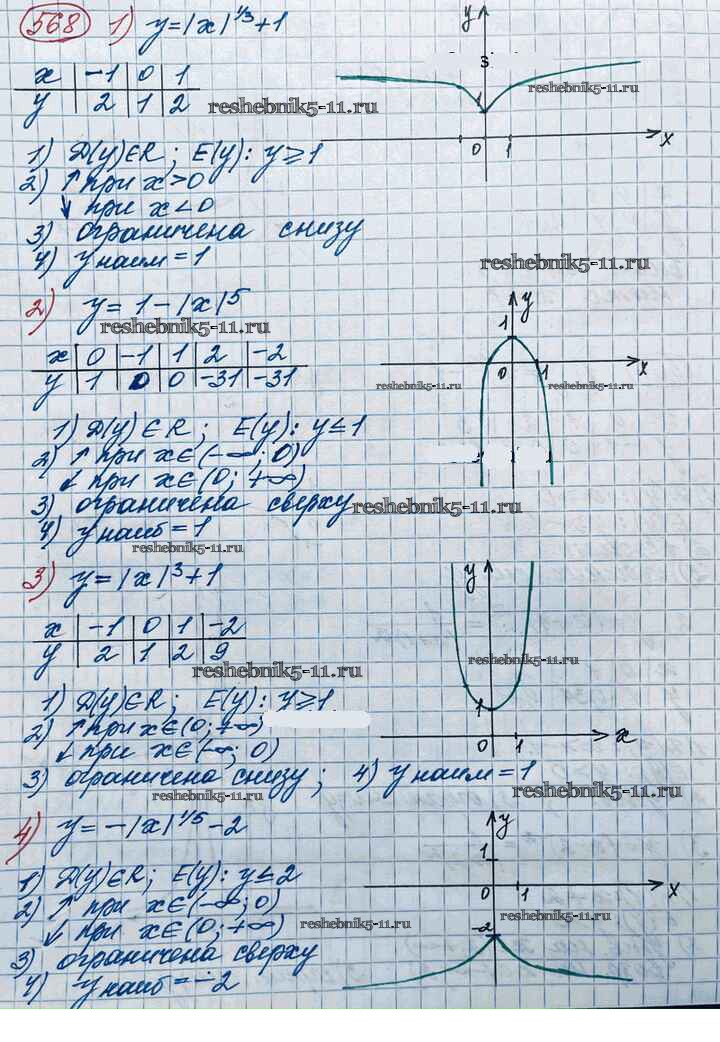 568 1) y=|x|^1/3+1
x | -1 | 0 | 1
y | 2 | 1 | 2
reshebnik5-11.ru
y
3
reshebnik5-11.ru
1
0 1 x
1) D(y)∈R; E(y): y≥1
2) ↑ при x>0
↓ при x<0
3) ограничена снизу
4) y наим = 1
reshebnik5-11.ru
2) y = 1-|x|^5
reshebnik5-11.ru
x | 0 | -1 | 1 | 2 | -2
y | 1 | 0 | 0 | -31 | -31
y
1
0 1 x
reshebnik5-11.ru
reshebnik5-11.ru
1) D(y)∈R; E(y): y≤1
2) ↑ при x∈(-∞; 0)
↓ при x∈(0; +∞)
3) ограничена сверху
reshebnik5-11.ru
4) y наиб = 1
reshebnik5-11.ru
3) y=|x|^3+1
x | -1 | 0 | 1 | -2
y | 2 | 1 | 2 | 9
reshebnik5-11.ru
y
reshebnik5-11.ru
1
0 1 x
1) D(y)∈R; E(y): y≥1
2) ↑ при x∈(0; +∞)
↓ при x∈(-∞; 0)
3) ограничена снизу; 4) y наим = 1
reshebnik5-11.ru
reshebnik5-11.ru
4) y=-|x|^1/5-2
y
1
0 1 x
-2
1) D(y)∈R; E(y): y≤2
2) ↑ при x∈(-∞; 0)
↓ при x∈(0; +∞)
reshebnik5-11.ru
reshebnik5-11.ru
3) ограничена сверху
4) y наиб = -2
reshebnik5-11.ru